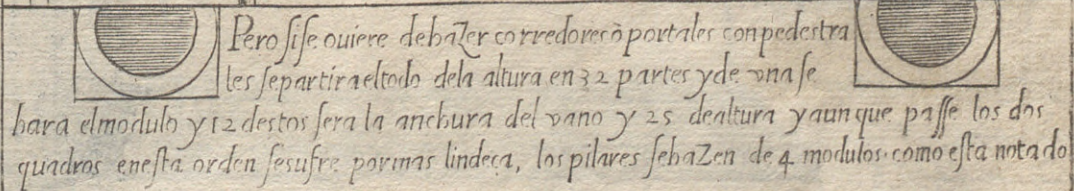 Pero si se ouiere de hazer corredores ò portales con pedestra
les se partira el todo de la altura en 32 partes y de vna se
hara el modulo y 12 destos sera la anchura del vano y 25 de altura y aun que passe los dos
quadros en esta orden se sufre por mas lindeça, los pilares se hazen de 4 modulos. como esta notado